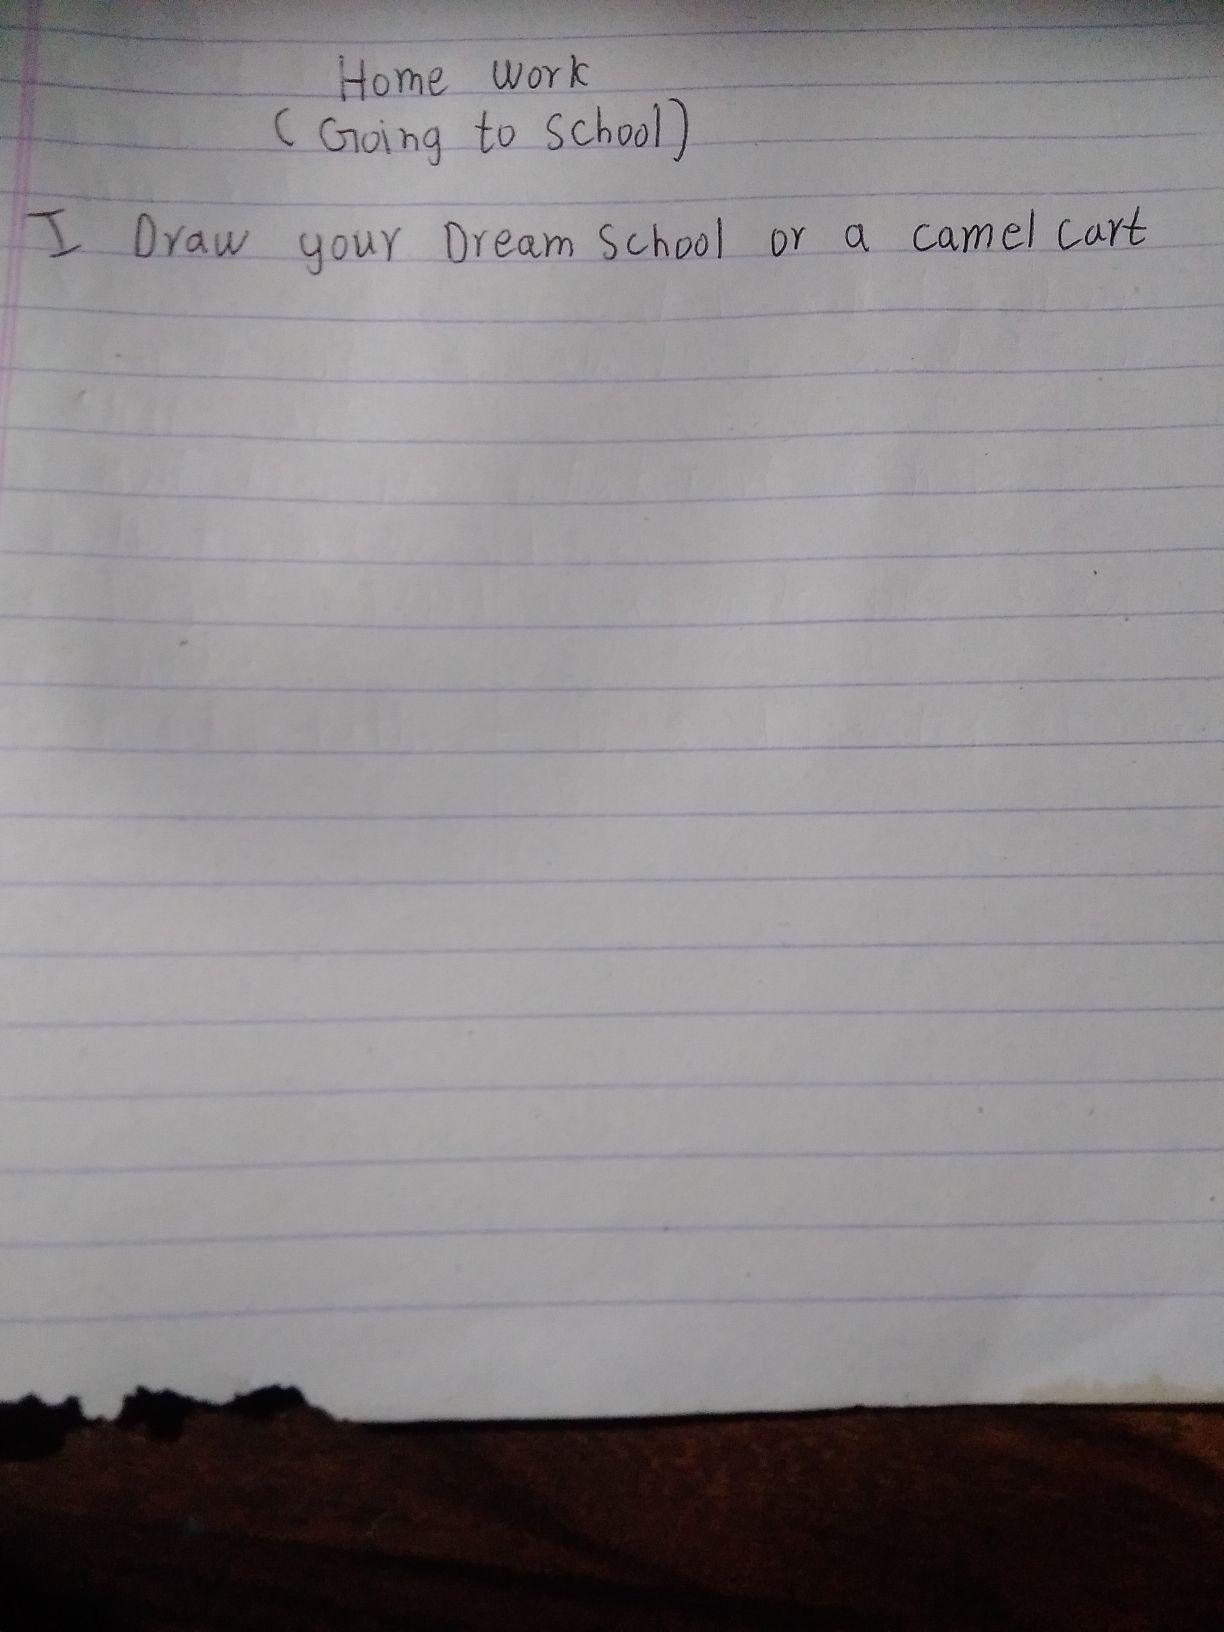 Home work
(Going to School)
I Draw your Dream School or a camel cart